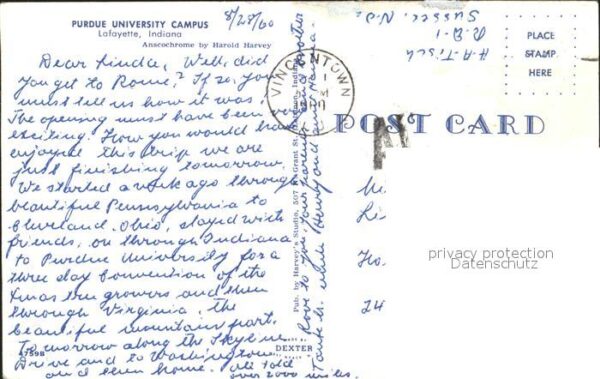 PURDUE UNIVERSITY CAMPUS
Lafayette, Indiana
Anscochrome by Harold Harvey
8/27/60
Dear Linda, Well, did
you get to Rome? If so, you
must tell us how it was.
The opening must have been
exciting. How you would have
enjoyed this trip we are
just finishing tomorrow.
We started a week ago through
beautiful Pennsylvania to
Cleveland, Ohio, stayed with
friends, on through Indiana
to Purdue University for a
three day convention of the
Xmas tree growers and then
through Virginia, the
beautiful mountain part.
Tomorrow along the Skyline
Drive and to Washington
and then home. All told
over 2000 miles.
47598
Love to you, your parents and brother
Tante H. Uncle Henry and
Pub. by Harvey's Studio, 507 N. Grant St.
DEXTER
H.A. Tisch
R.D. 1
Sussex, N.J.
VINCENTOWN
PLACE
STAMP
HERE
POST CARD
No
Mi
Li
Ho.
24
privacy protection
Datenschutz